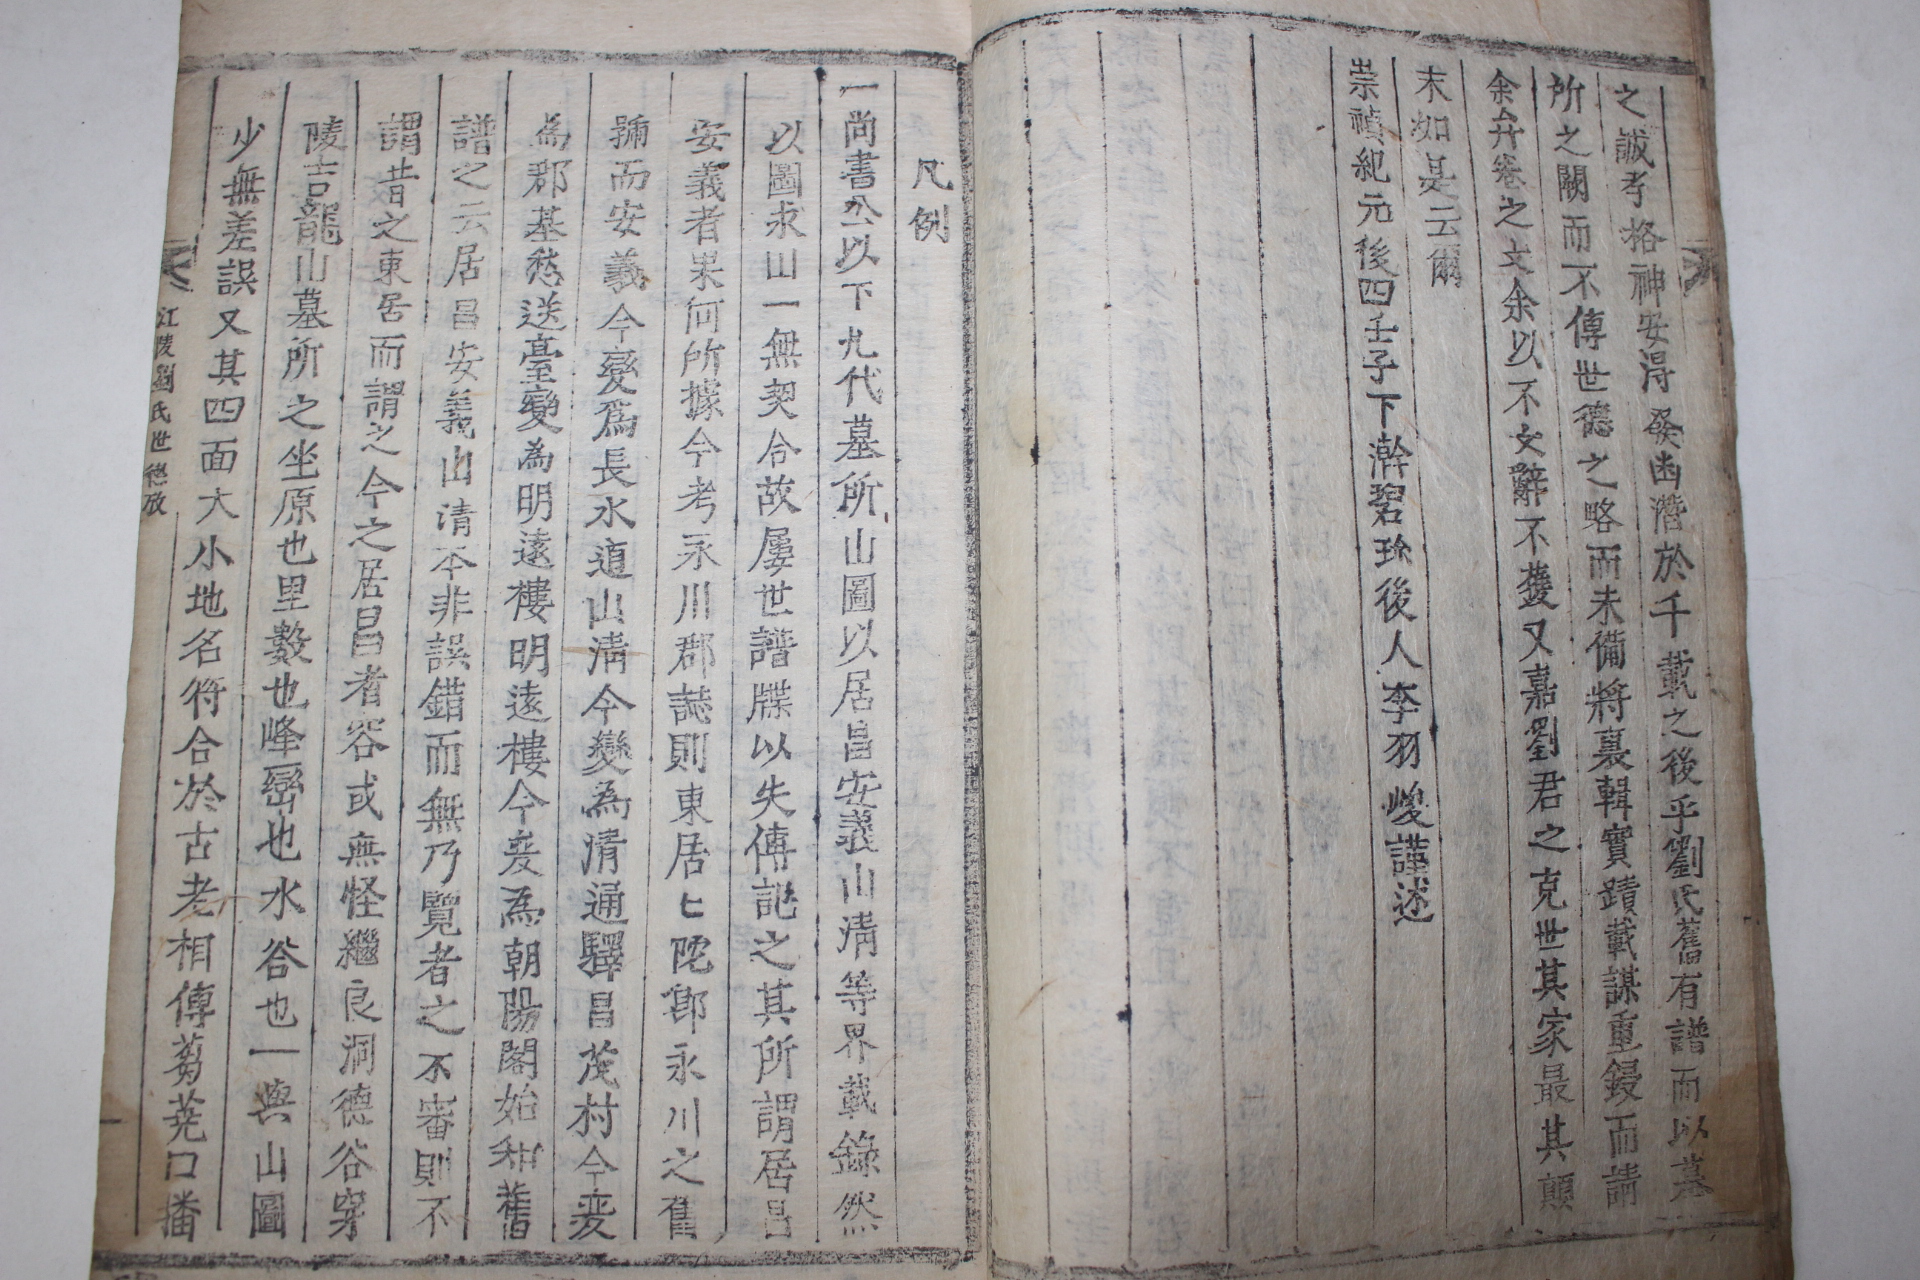 之誠孝格神安得發幽潛於千載之後乎劉氏舊有譜而以墓
所之闕而不傳世德之略而未備將裒輯實蹟載謀重鋟而請
余弁卷之文余以不文辭不獲又嘉劉君之克世其家最其顛
末如是云爾
崇禎紀元後四壬子下澣碧珍後人李羽峻謹述
凡例
一尚書公以下九代墓所山圖以居昌安義山淸等界載錄然
以圖求山一無契合故屢世譜牒以失傳記之其所謂居昌
安義者果何所據今考永川郡誌則東居匕陀鄕永川之舊
號而安義今變爲長水道山淸今變為清通驛昌茂村今変
為郡基愁送臺變為明遠樓明遠樓今変為朝陽閣始知舊
譜之云居昌安義山清本非誤錯而無乃覽者之不審則不
謂昔之東居而謂之今之居昌者容或無怪繼良洞德谷穿
陵吉龍山墓所之坐原也里數也峰巒也水谷也一與山圖
少無差誤又其四面大小地名符合於古老相傳蒭蕘口播
江陵劉氏世德攷